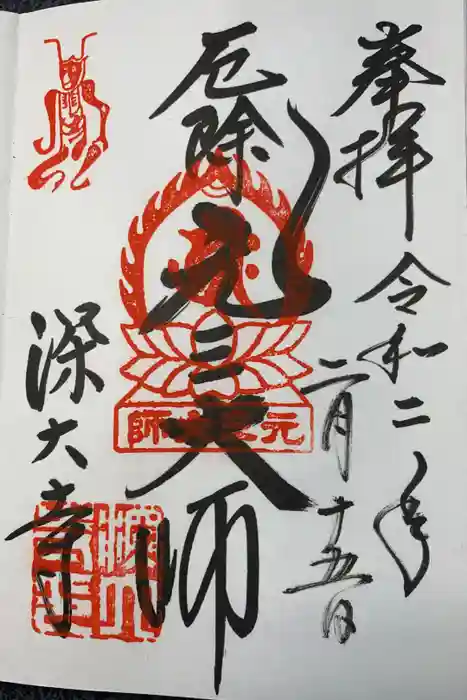 奉拝
令和二年
二月十五日
厄除
元三大師
元三大師
深大寺